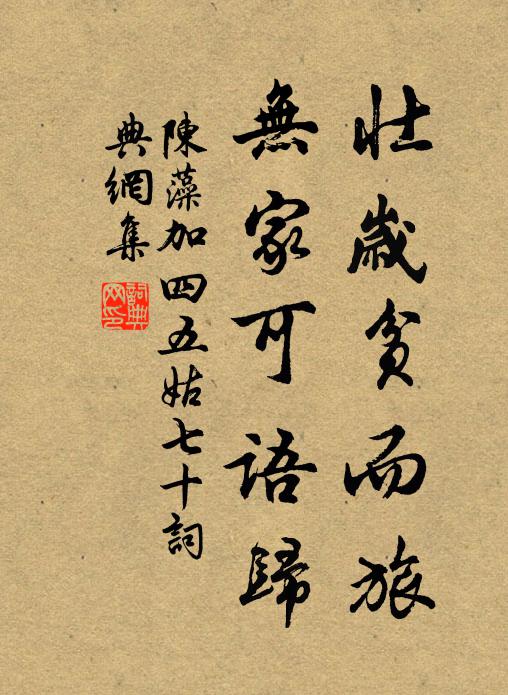 壯歲貧而旅
無家可語歸
陳藻加四五姑七十詞
典網集
詞典網印